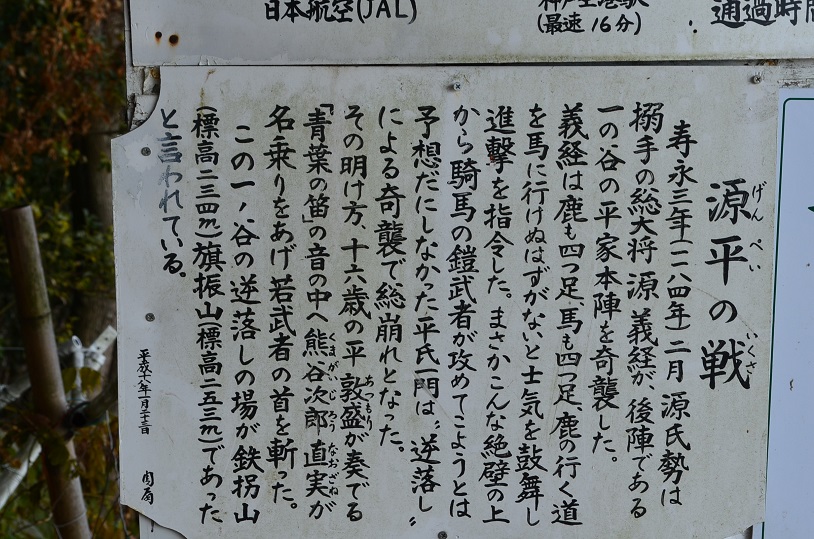 日本航空(JAL)
(最速 16分)
通過時間
源平の戦
げんぺい
いくさ
寿永三年(一一八四年)二月 源氏勢は
搦手の総大将 源 義経が、後陣である
一の谷の平家本陣を奇襲した。
義経は鹿も四つ足、馬も四つ足、鹿の行く道
を馬に行けぬはずがないと士気を鼓舞し
進撃を指令した。まさかこんな絶壁の上
から騎馬の鎧武者が攻めてこようとは
予想だにしなかった平氏一門は〝逆落し〟
による奇襲で総崩れとなった。
その明け方、十六歳の平 敦盛が奏でる
あつもり
「青葉の笛」の音の中へ 熊谷次郎 直実が
くまがいじろう なおざね
名乗りをあげ 若武者の首を斬った。
この一ノ谷の逆落しの場が鉄拐山
(標高二三四m)旗振山(標高二五三m)であった
と言われている。